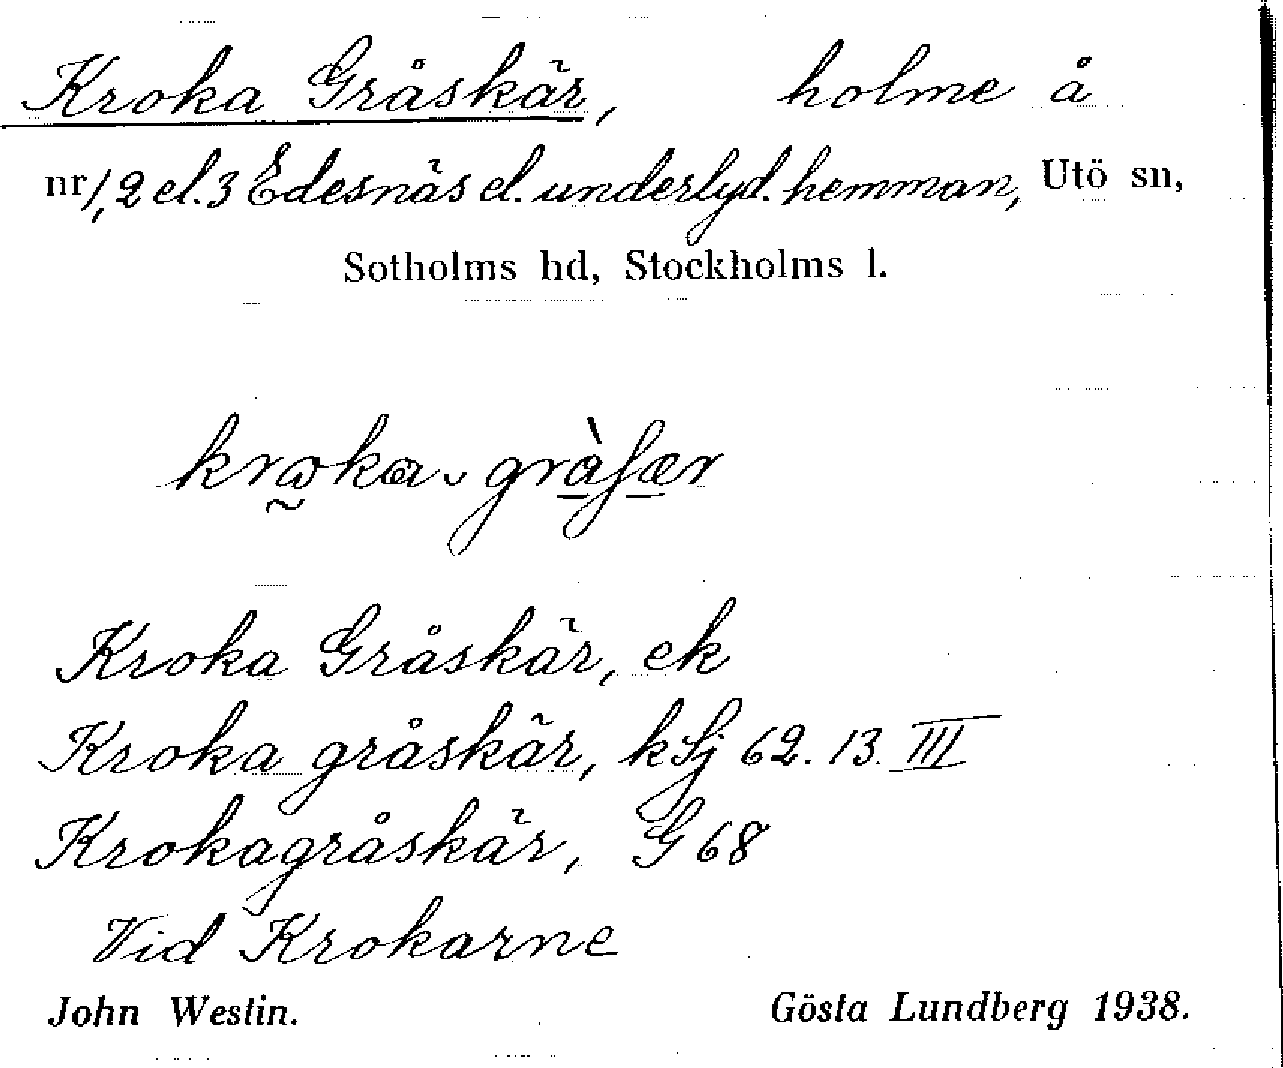 Kroka Gråskär, holme å
nr 1, 2 el. 3 Edesnäs el. underlyd. hemman, Utö sn,
Sotholms hd, Stockholms l.
Kroka Gråskär, ek
Kroka gråskär, kSj 62. 13. III
Krokagråskär, G 68
Vid Krokarne
John Westin. Gösta Lundberg 1938.